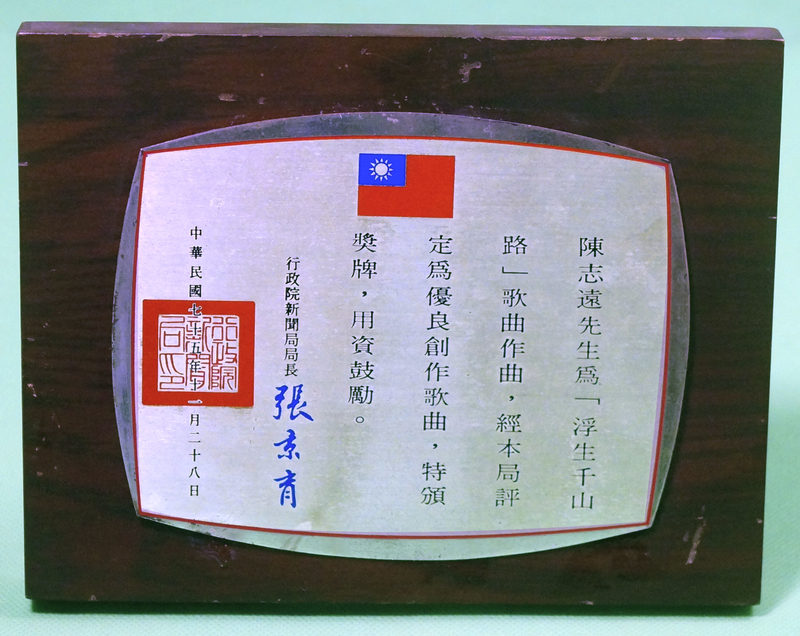 陳志遠先生爲「浮生千山
路」歌曲作曲，經本局評
定爲優良創作歌曲，特頒
獎牌，用資鼓勵。
行政院新聞局局長 張京育
中華民國七十五年十一月二十八日
行政院新聞局印